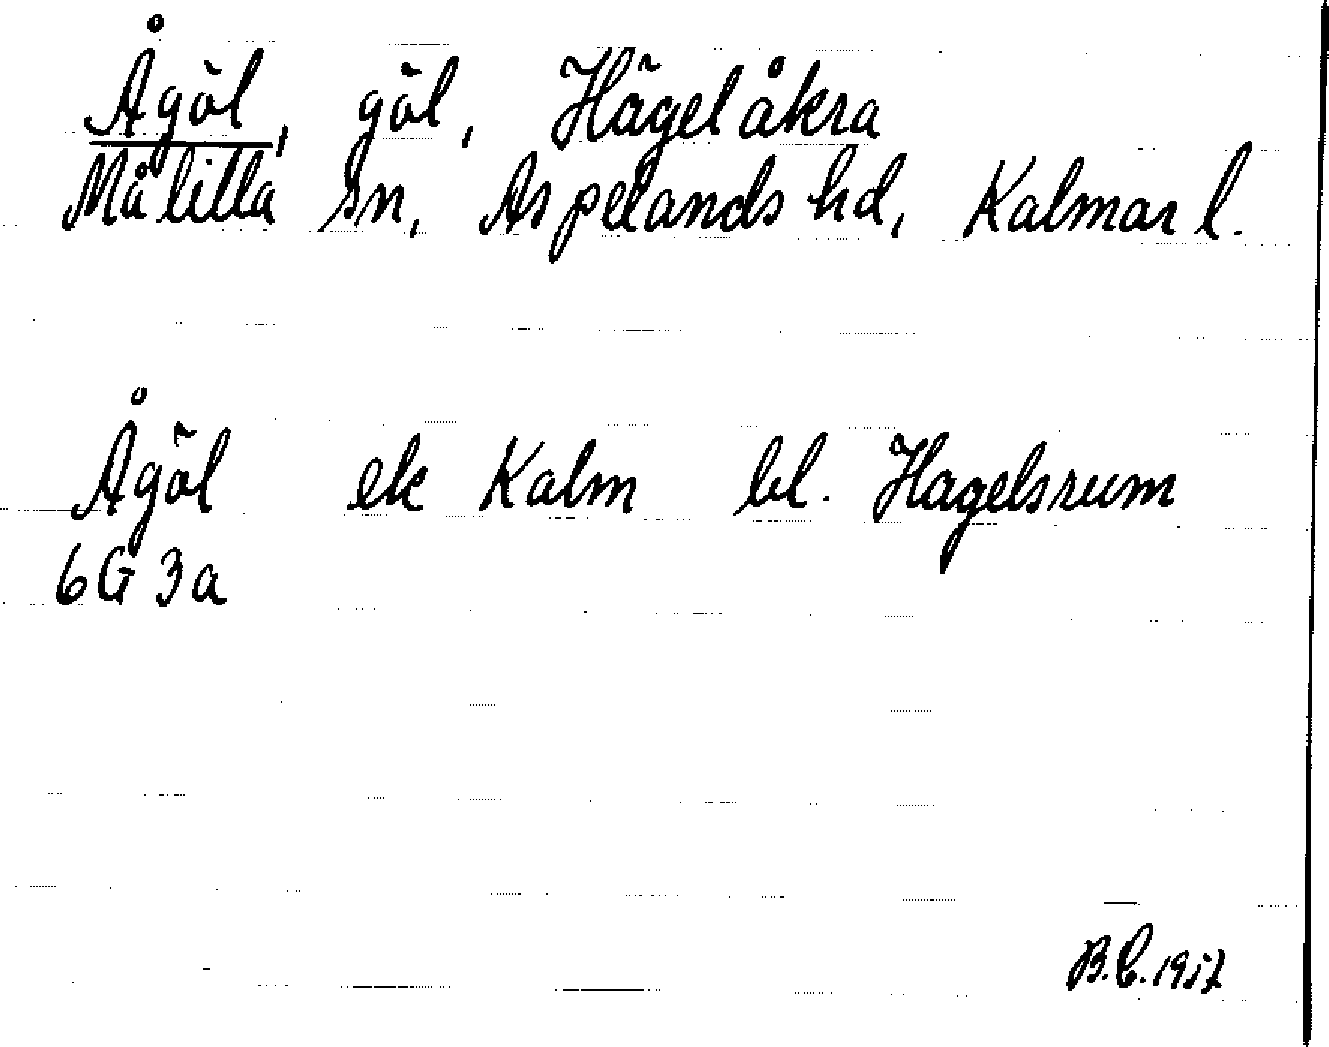 Ågöl, göl, Hägelåkra
Målilla sn, Aspelands hd, Kalmar l.
Ågöl ek Kalm bl. Hagelsrum
6G3a
B.E. 1957